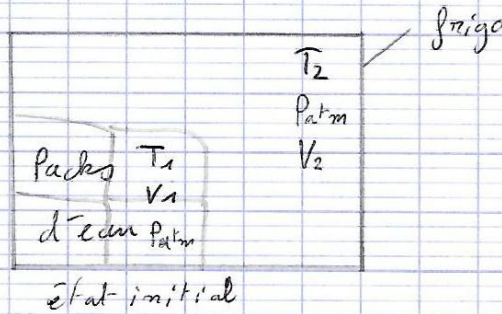 frigo
T2
Patm
V2
Packs T1
V1
d'eau Patm
état initial